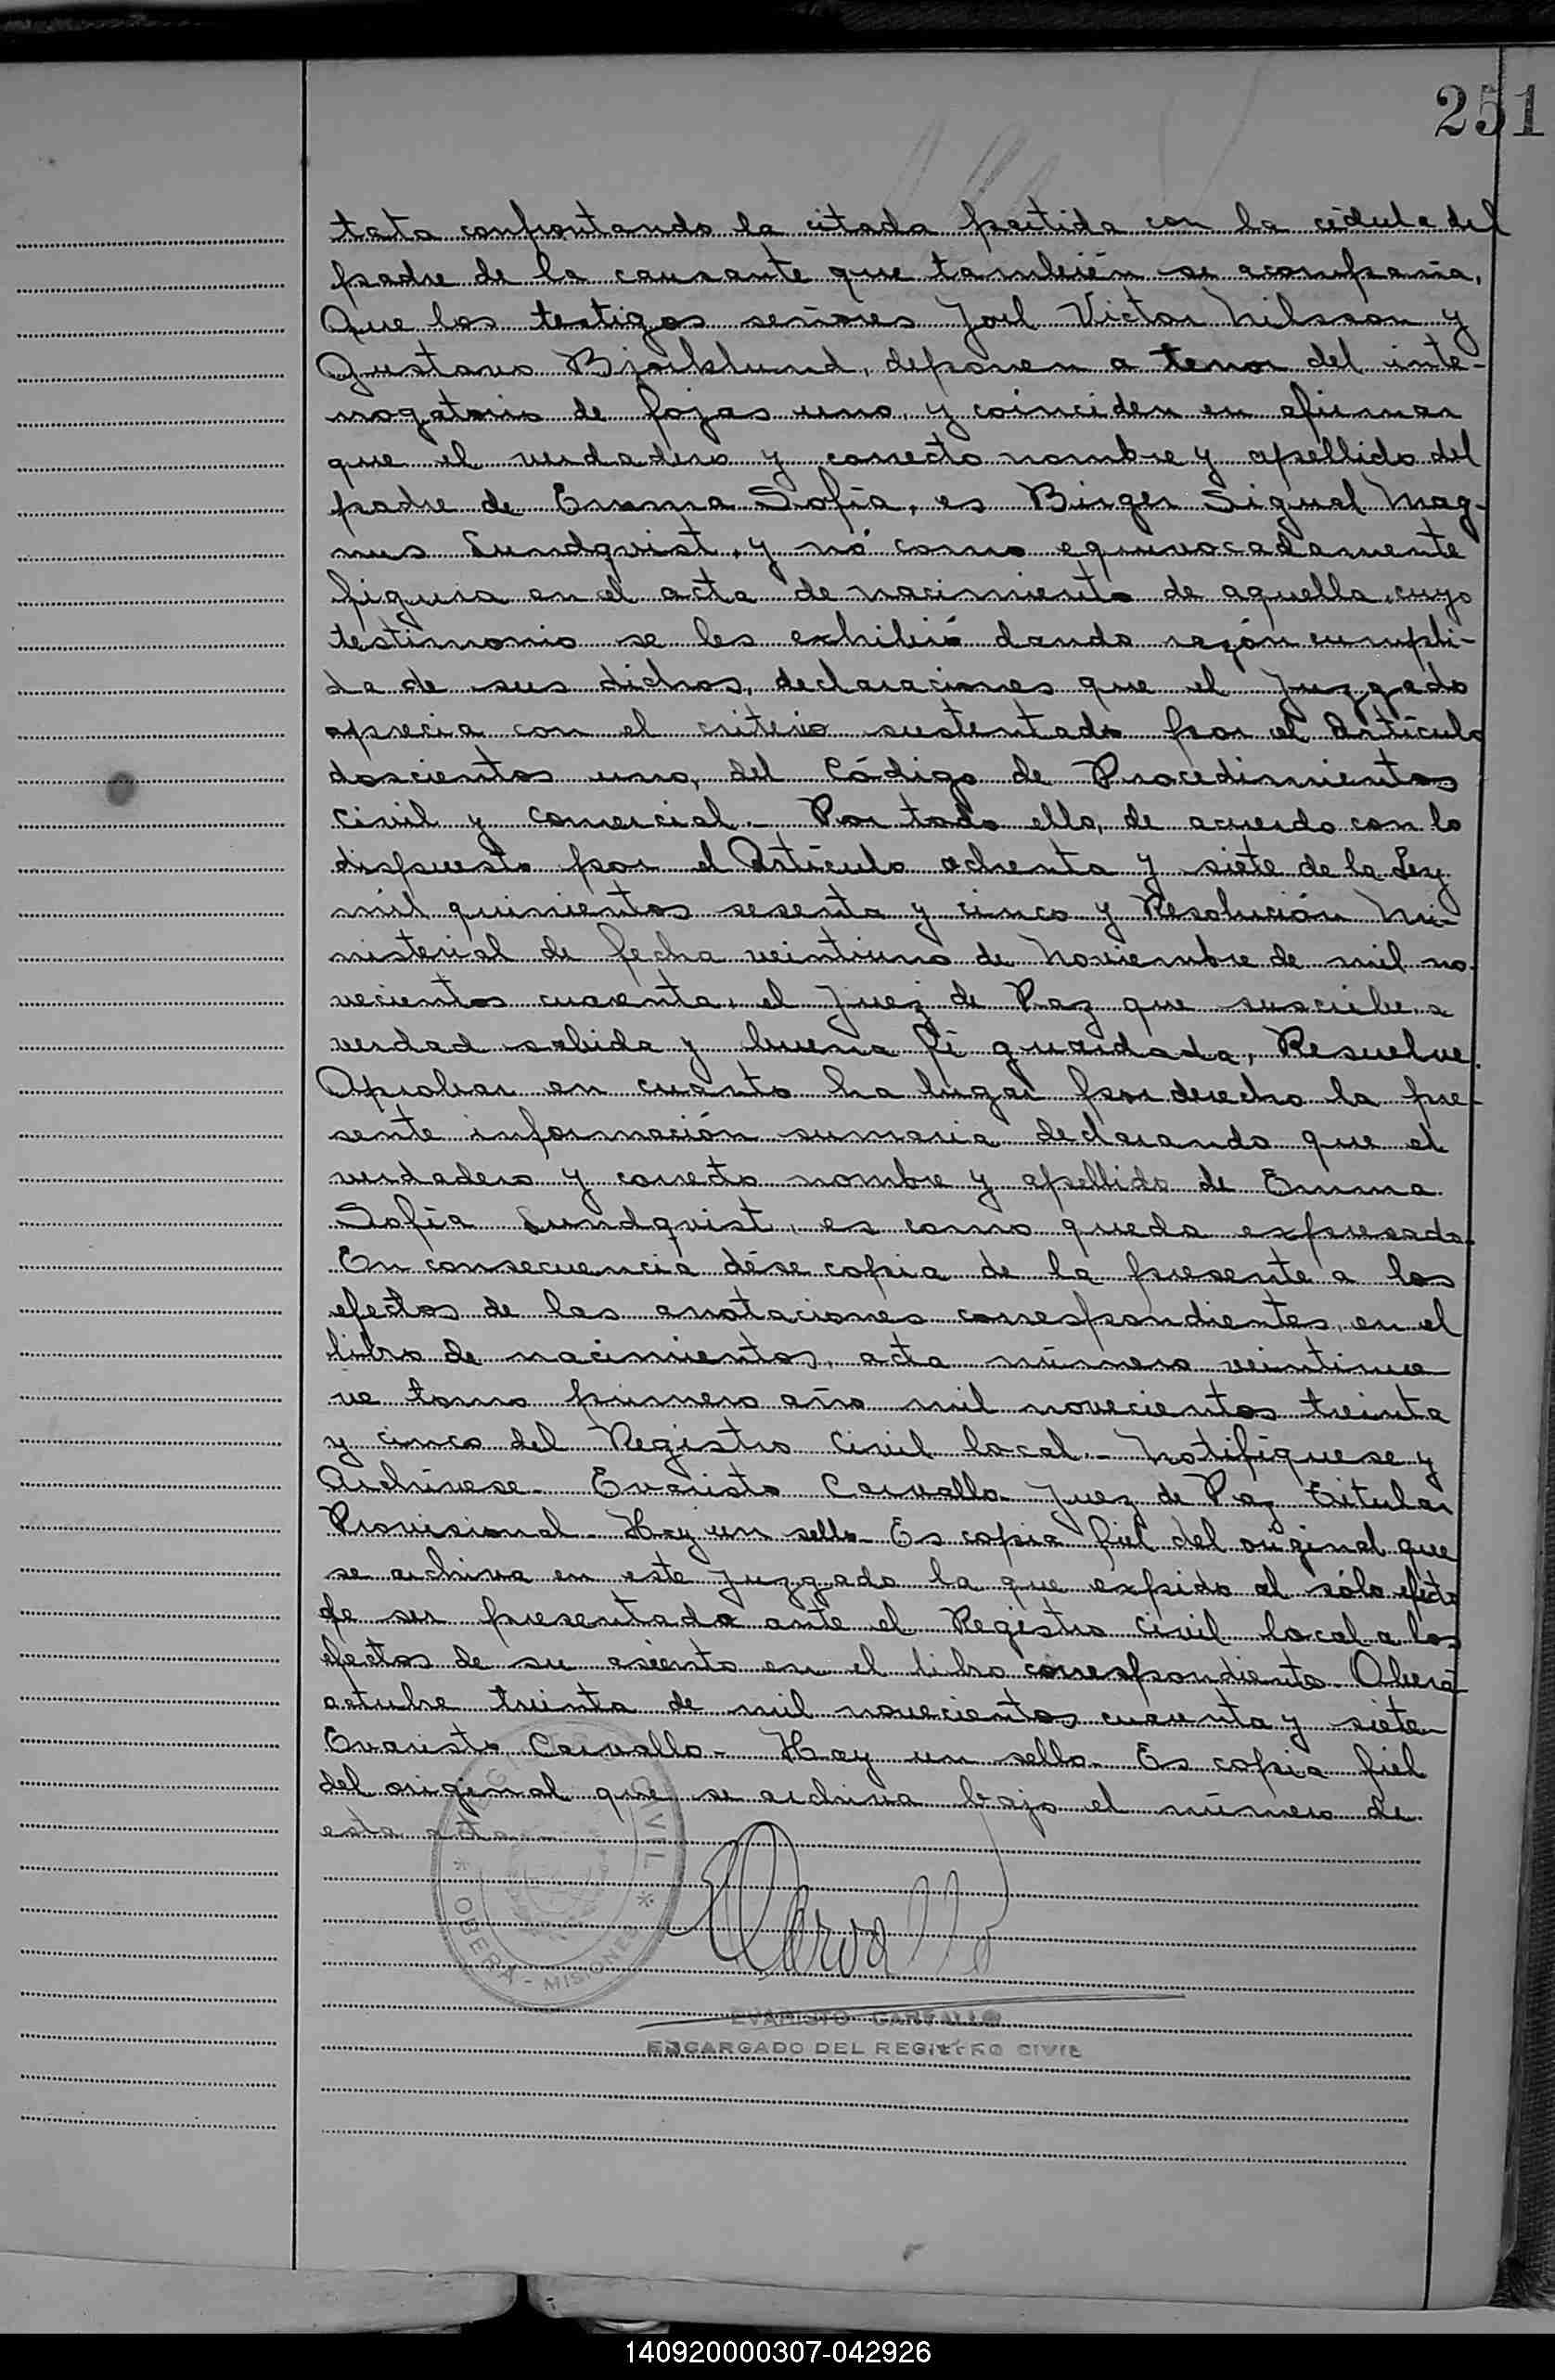 251
tata confrontando la citada partida con la cédula del
padre de la causante que también se acompaña,
Que los testigos señores Joel Victor Nilsson y
Gustavo Bjorklund, deponen a tenor del inte-
rrogatorio de fojas uno, y coinciden en afirmar
que el verdadero y correcto nombre y apellido del
padre de Emma Sofía, es Birger Siguel Mag-
nus Lundqvist, y nó como equivocadamente
figura en el acta de nacimiento de aquella, cuyo
testimonio se les exhibió dando razón cumpli-
da de sus dichos, declaraciones que el Juzgado
aprecia con el criterio sustentado por el Artículo
doscientos uno, del Código de Procedimientos
Civil y Comercial.- Por todo ello, de acuerdo con lo
dispuesto por el Artículo ochenta y siete de la Ley
mil quinientos sesenta y cinco y Resolución Mi-
nisterial de fecha veintiuno de Noviembre de mil no-
vecientos cuarenta, el Juez de Paz que suscribe, a
verdad sabida y buena fé guardada, Resuelve.
Aprobar en cuanto ha lugar por derecho la pre-
sente información sumaria declarando que el
verdadero y correcto nombre y apellido de Emma
Sofía Lundqvist, es como queda expresado.
En consecuencia dése copia de la presente a los
efectos de las anotaciones correspondientes, en el
libro de nacimientos, acta número veintinue
ve tomo primero año mil novecientos treinta
y cinco del Registro Civil local.- Notifíquese y
Archívese.- Evaristo Carvallo- Juez de Paz Titular
Provisional.- Hay un sello- Es copia fiel del original que
se archiva en este Juzgado la que expido al sólo efecto
de ser presentada ante el Registro Civil local a los
efectos de su asiento en el libro correspondiente- Oberá
octubre treinta de mil novecientos cuarenta y siete-
Evaristo Carvallo- Hay un sello- Es copia fiel
del original que se archiva bajo el número de
esta acta.-
REGISTRO CIVIL
* OBERÁ - MISIONES *
ECarvallo
EVARISTO CARVALLO
ENCARGADO DEL REGISTRO CIVIL
140920000307-042926